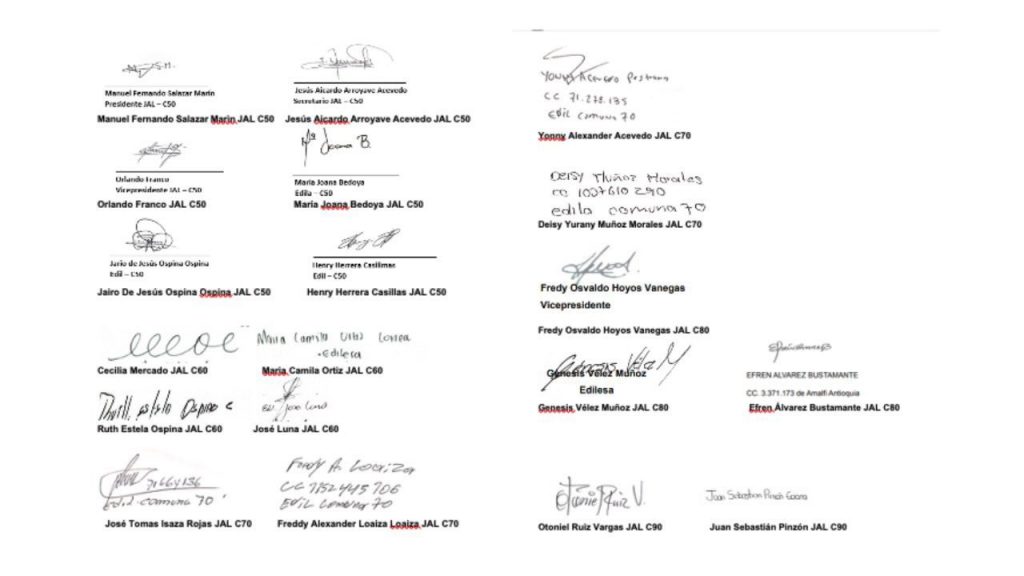 S.M.
Manuel Fernando Salazar Marin
Presidente JAL – C50
Manuel Fernando Salazar Marin JAL C50
Jesús Aicardo Arroyave Acevedo
Secretario JAL – C50
Jesús Aicardo Arroyave Acevedo JAL C50
Orlando Franco
Vicepresidente JAL – C50
Orlando Franco JAL C50
Mª Joana B.
Maria Joana Bedoya
Edila – C50
Maria Joana Bedoya JAL C50
Jario de Jesús Ospina Ospina
Edil – C50
Jairo De Jesús Ospina Ospina JAL C50
Henry Herrera Casillmas
Edil – C50
Henry Herrera Casillas JAL C50
Cecilia Mercado JAL C60
Maria Camila
Edilesa
Maria Camila Ortiz JAL C60
Estela Ospino C
Ruth Estela Ospina JAL C60
José Luna
José Luna JAL C60
71664136
Edil comuna 70
José Tomas Isaza Rojas JAL C70
Fredy A. Loaiza
CC 7152445706
Edil comuna 70
Freddy Alexander Loaiza Loaiza JAL C70
Yonny Acevedo
CC 71.278.135
Edil comuna 70
Yonny Alexander Acevedo JAL C70
Deisy Muñoz Morales
CC 1037610290
edila comuna 70
Deisy Yurany Muñoz Morales JAL C70
Fredy Osvaldo Hoyos Vanegas
Vicepresidente
Fredy Osvaldo Hoyos Vanegas JAL C80
Genesis Vélez M
Genesis Vélez Muñoz
Edilesa
Genesis Vélez Muñoz JAL C80
EFREN ALVAREZ BUSTAMANTE
CC. 3.371.173 de Amalfi Antioquia
Efren Álvarez Bustamante JAL C80
Otoniel Ruiz V.
Otoniel Ruiz Vargas JAL C90
Juan Sebastian Pinzón
Juan Sebastián Pinzón JAL C90